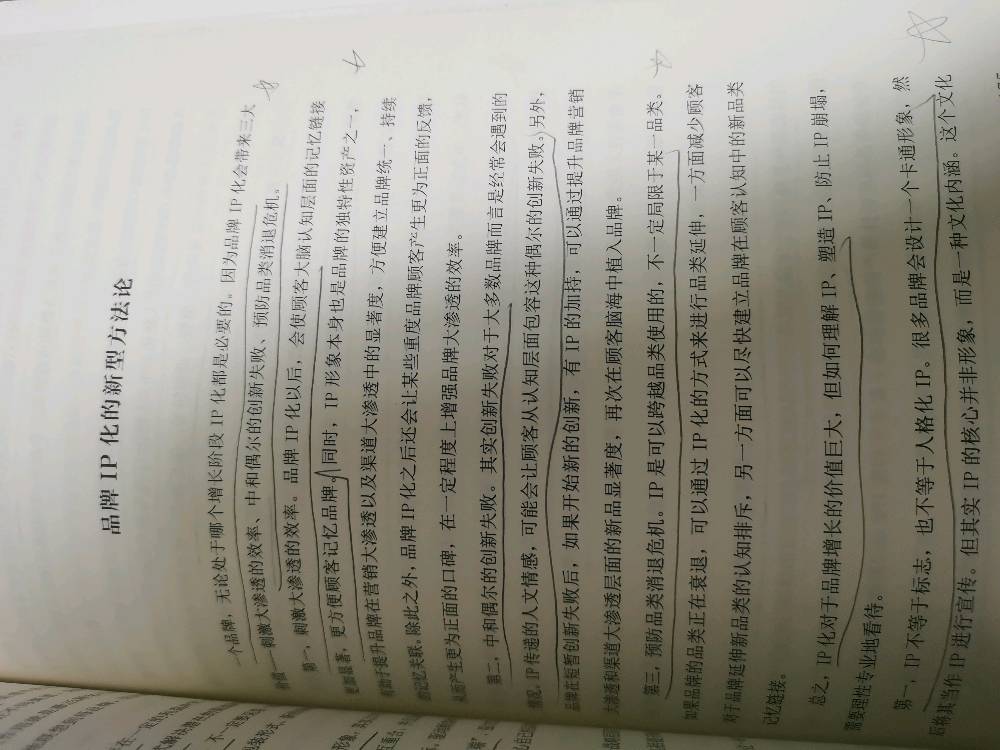 品牌 IP 化的新型方法论
一个品牌，无论处于哪个增长阶段 IP 化都是必要的。因为品牌 IP 化会带来三大
价值——刺激大渗透的效率、中和偶尔的创新失败、预防品类消退危机。
第一，刺激大渗透的效率。品牌 IP 化以后，会使顾客大脑认知层面的记忆链接
更加显著，更方便顾客记忆品牌。同时，IP 形象本身也是品牌的独特性资产之一，
有助于提升品牌在营销大渗透以及渠道大渗透中的显著度，方便建立品牌统一、持续
的记忆关联。除此之外，品牌 IP 化之后还会让某些重度品牌顾客产生更为正面的反馈，
从而产生更为正面的口碑，在一定程度上增强品牌大渗透的效率。
第二，中和偶尔的创新失败。其实创新失败对于大多数品牌而言是经常会遇到的
情况，IP 传递的人文情感，可能会让顾客从认知层面包容这种偶尔的创新失败。另外，
品牌在短暂创新失败后，如果开始新的创新，有 IP 的加持，可以通过提升品牌营销
大渗透和渠道大渗透层面的新品显著度，再次在顾客脑海中植入品牌。
第三，预防品类消退危机。IP 是可以跨越品类使用的，不一定局限于某一品类。
如果品牌的品类正在衰退，可以通过 IP 化的方式来进行品类延伸，一方面减少顾客
对于品牌延伸新品类的认知排斥，另一方面可以尽快建立品牌在顾客认知中的新品类
记忆链接。
总之，IP 化对于品牌增长的价值巨大，但如何理解 IP、塑造 IP、防止 IP 崩塌，
需要理性专业地看待。
第一，IP 不等于标志，也不等于人格化 IP。很多品牌会设计一个卡通形象，然
后将其当作 IP 进行宣传。但其实 IP 的核心并非形象，而是一种文化内涵。这个文化